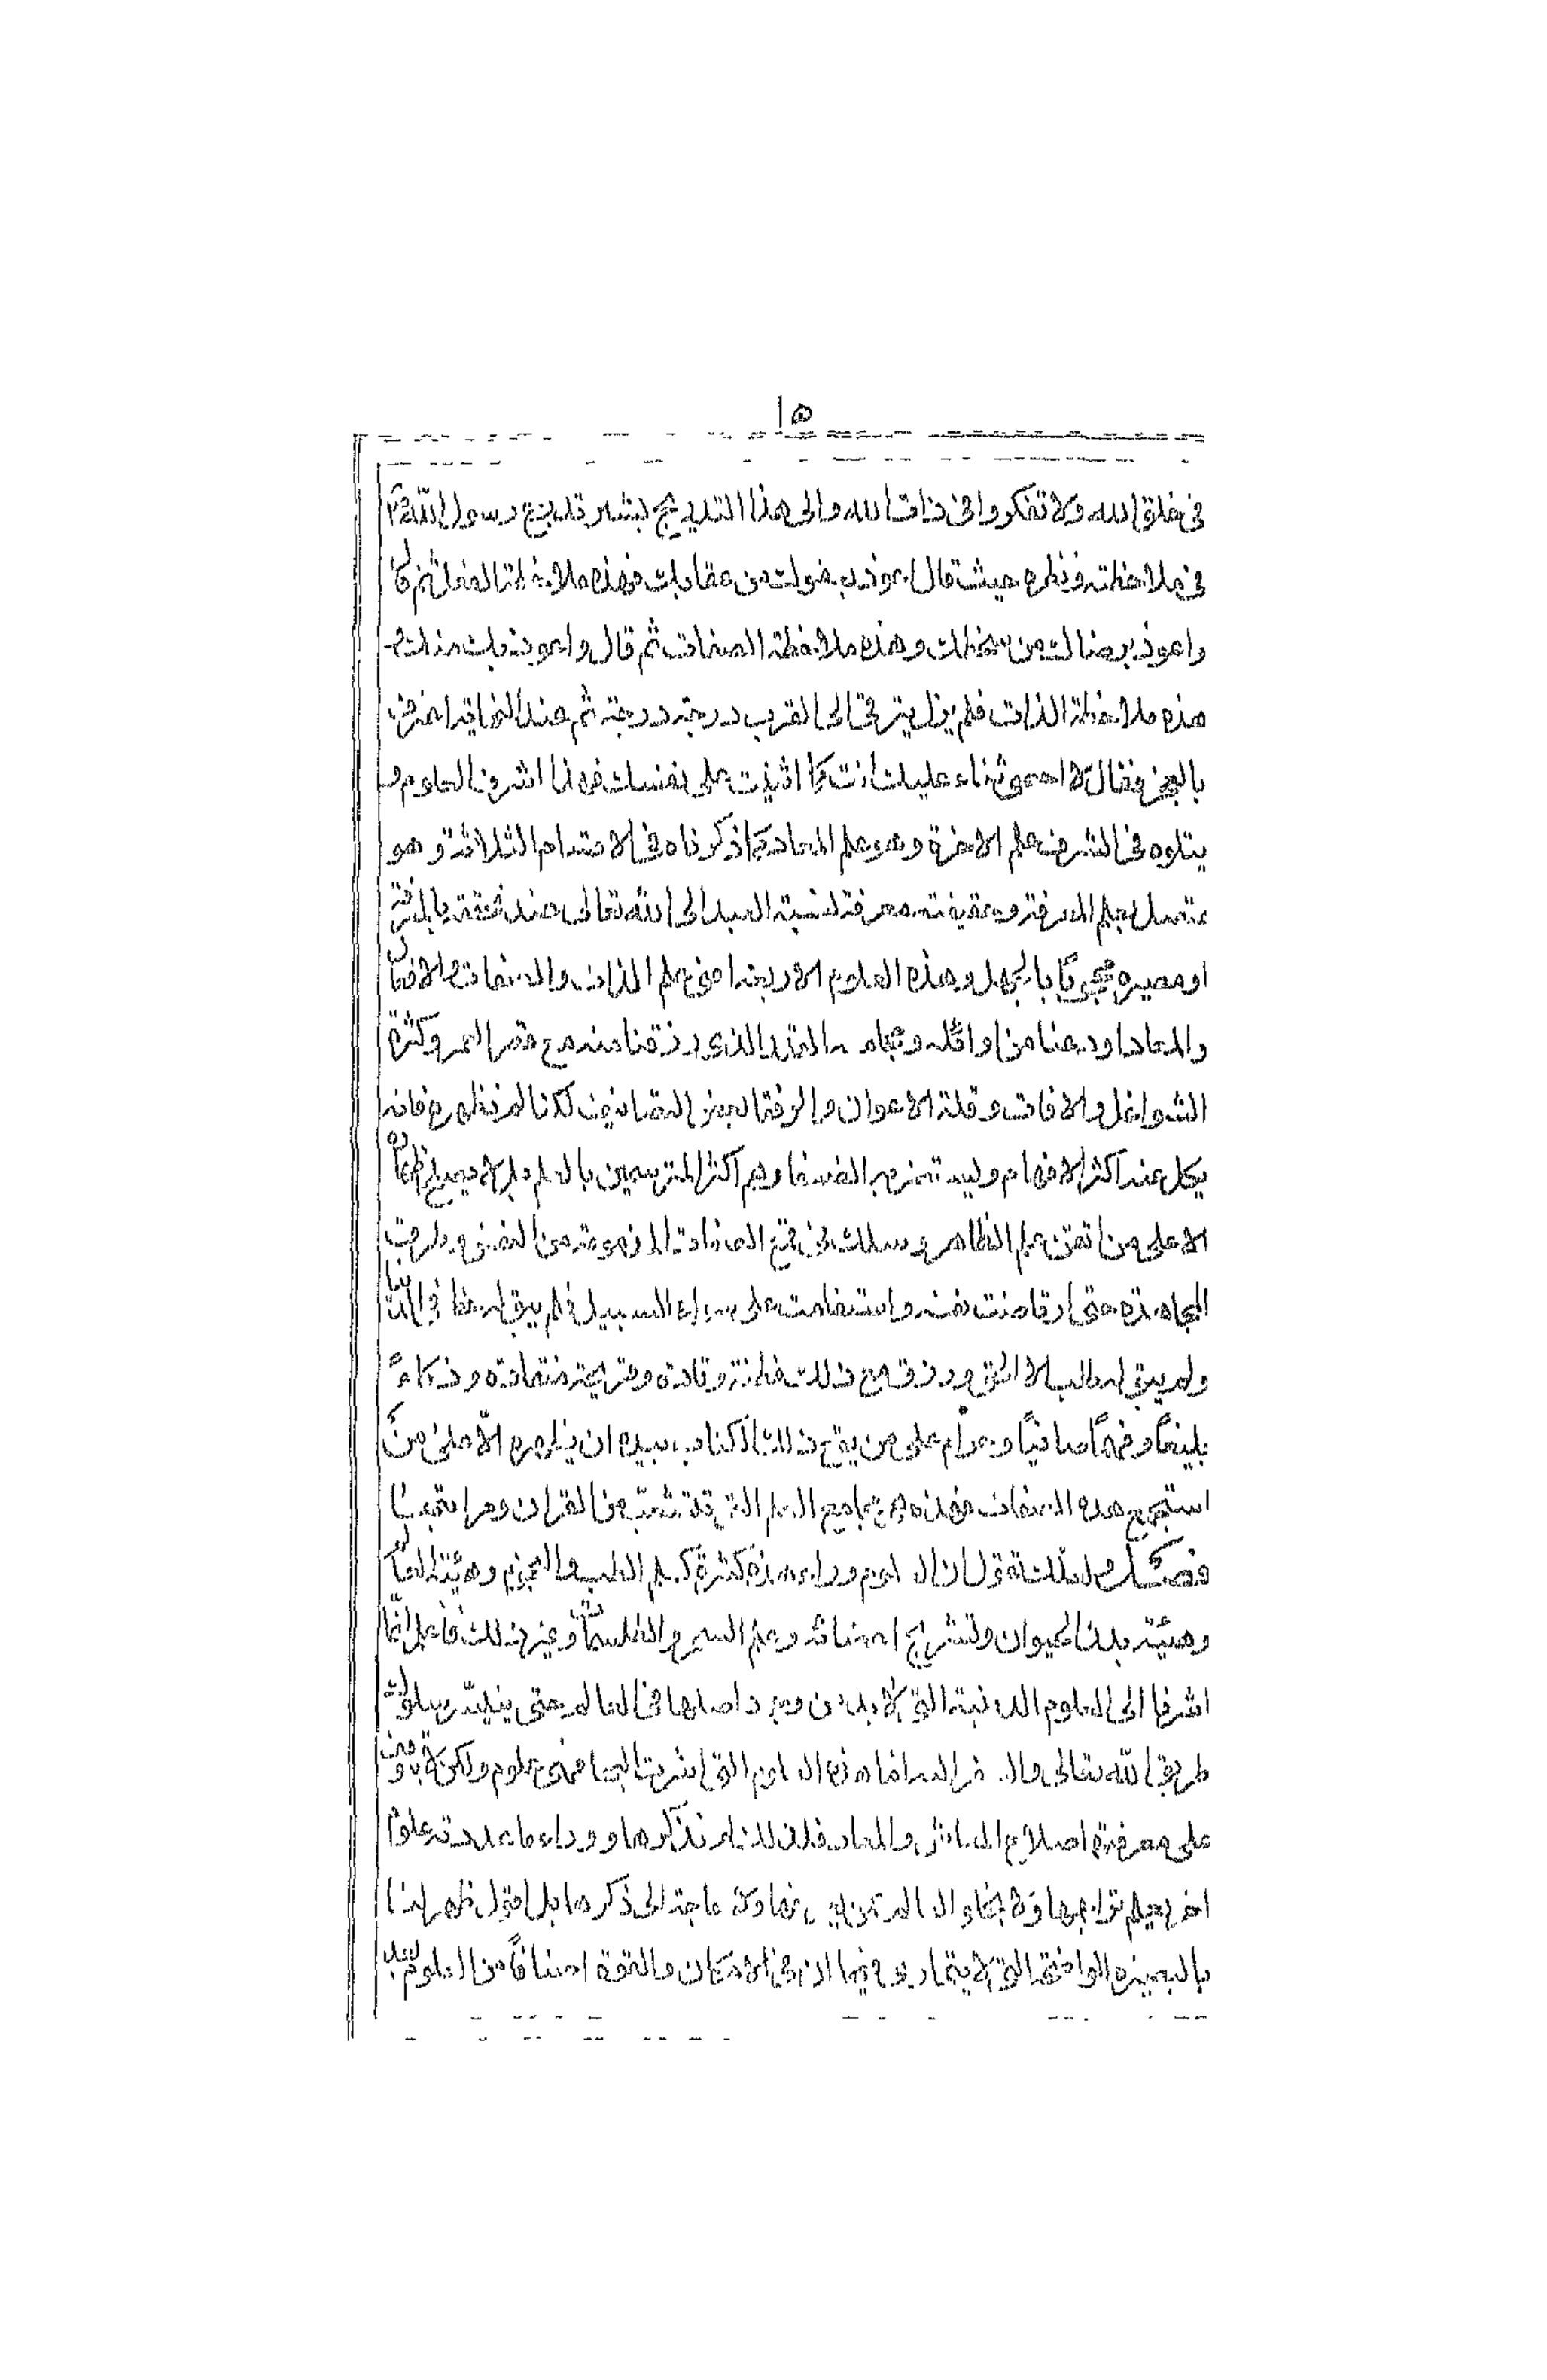 ١٥
في خلق الله ولا تفكروا في ذات الله والى هذا التدريج يشير تدرج رسول الله
في ملاحظته ونظره حيث قال اعوذ بعفوك من عقابك فهذه ملاحظة الفعل ثم قال
واعوذ برضاك من سخطك وهذه ملاحظة الصفات ثم قال واعوذ بك منك و
هذه ملاحظة الذات فلم يزل يترقى الى القرب درجة درجة ثم عند النهاية اعترف
بالعجز فقال لا احصي ثناء عليك انت كما اثنيت على نفسك فهذا اشرف العلوم و
يتلوه في الشرف علم الاخرة وهو علم المعاد كما ذكرناه في الاقسام الثلاثة وهو
متصل بعلم المعرفة وحقيقته معرفة نسبة العبد الى الله تعالى عند تحققه بالمعرفة
او مصيره محجوبا بالجهل وهذه العلوم الاربعة اعني علم الذات والصفات والافعال
والمعاد اودعنا من اوائله ومجامعه القدر الذي رزقنا منه مع قصر العمر وكثرة
الشواغل والافات وقلة الاعوان والرفقاء بعض التصانيف لكنا لم نظهره فانه
يكل عنه اكثر الافهام ويستضر به الضعفاء وهم اكثر المترسمين بالعلم بل لا يصلح اظهاره
الا على من اتقن علم الظاهر وسلك في قمع الصفات المذمومة من النفس وطرق
المجاهدة حتى ارتاضت نفسه واستقامت على سواء السبيل فلم يبق له حظ في الدنيا
ولم يبق له طلب الا الحق ورزق مع ذلك فطنة وقادة وقريحة منقادة وذكاءً
بليغاً وفهماً صافياً وحرام على من يقع ذلك الكتاب بيده ان يظهره الّا على من
استجمع هذه الصفات فهذه هي مجامع العلم التي تتشعب من القران ومراتبها
فصل لعلك تقول ان العلوم وراء هذه كثيرة كعلم الطب والنجوم وهيئة العالم
وهيئة بدن الحيوان وتشريح اعضائه وعلم السحر والطلسمات وغير ذلك فاعلم انّا
اشرنا الى العلوم الدينية التي لا بد من وجود اصلها في العالم حتى يتيسر سلوك
طريق الله تعالى والسفر اليه اما هذه العلوم التي اشرت اليها فهي علوم ولكن لا يتوقف
على معرفتها صلاح المعاش والمعاد فلذلك لم نذكرها ووراء ما عددته علوم
اخر يعلم تراجمها ولا يخلو العالم عمن يعرفها ولا حاجة الى ذكرها بل اقول ظهر لنا
بالبصيرة الواضحة التي لا يتمارى فيها ان في الامكان والقوة اصنافاً من العلوم بعد